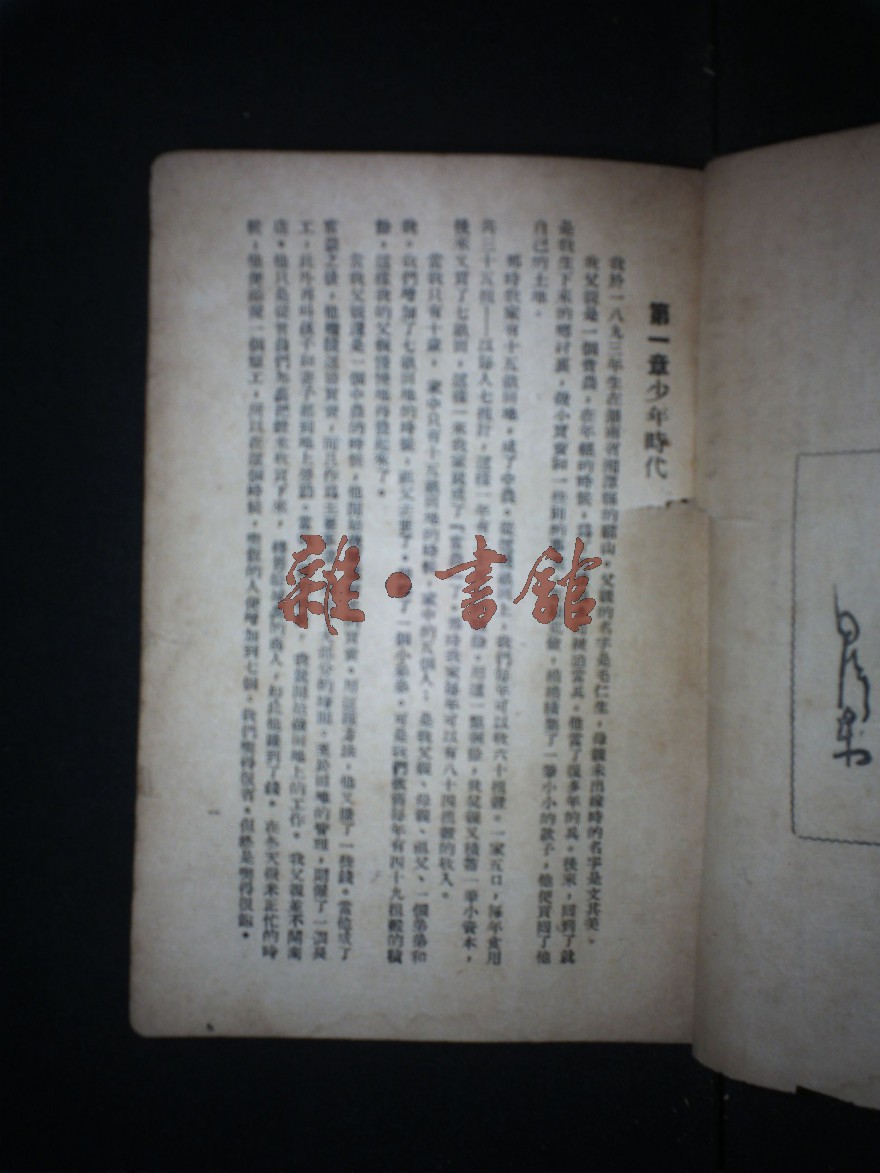 第一章 少年時代
我於一八九三年生在湖南省湘潭縣的韶山，父親的名字是毛仁生，母親未出嫁時的名字是文其美。
我父親是一個貧農，在年輕的時候，當兵。他當了很多年的兵。後來，回到了就
是我生下來的鄉村裏，做小買賣和一些別的，積蓄了一筆小小的款子，他便買回了他
自己的土地。
那時我家有十五畝田地，成了中農。我們每年可以收六十擔穀。一家五口，每年食用
共三十五擔——以每人七擔計，這樣一年有，用這一點剩餘，我父親又積蓄一筆小資本，
後來又買了七畝田，這樣一來我家就成了『富農，時我家每年可以有八十四擔穀的收入。
當我只有十歲，家中只有十五畝田地的時候，家中的五個人：是我父親、母親、祖父、一個弟弟和
我。我們增加了七畝田地的時候，祖父去世了。了一個小弟弟，可是我們依舊每年有四十九擔穀的積
餘，這樣我的父親慢慢地得發起來了。
當我父親還是一個中農的時候，他開始買賣，用這個方法，他又賺了一些錢。當他成了
富農之後，他大部分的時間，至於田地的管理，則僱了一個長
工，此外再叫孩子和妻子都到地上勞動。我就開始做田地上的工作。我父親並不開商
店。他只是從貧農們那裏把穀米收買下來，商人，如此他賺到了錢。在冬天磨米正忙的時
候，他便添僱一個短工，所以在這個時候，吃飯的人便增加到七個。我們吃得很省，但終是吃得很飽。
一
雜·書館
澤東